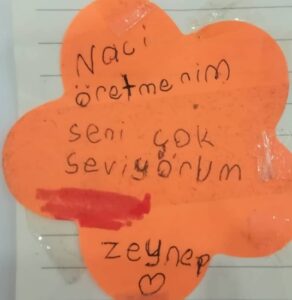 Naci
öretmenim
seni çok
seviyörum
zeynep